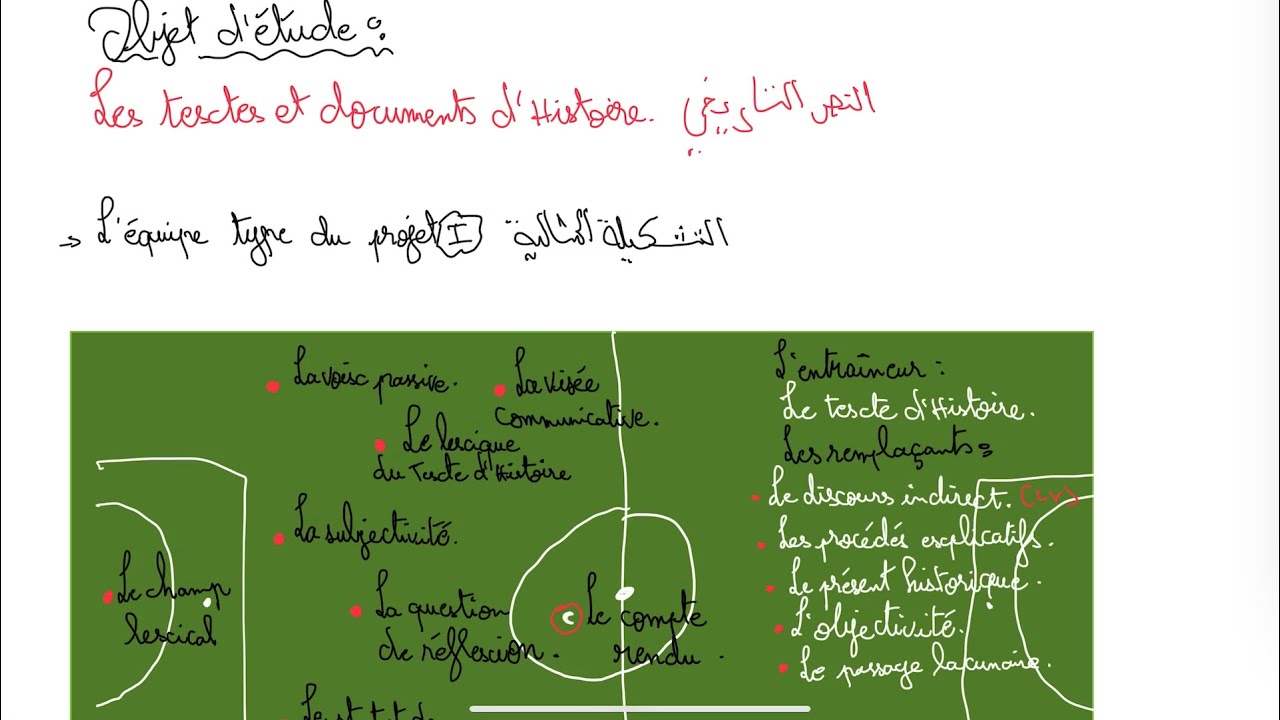 Objet d'étude :
Les textes et documents d'Histoire. النص التاريخي
⇒ L'équipe type du projet I التشكيلة المثالية
La voix passive.
La visée
communicative.
Le lexique
du Texte d'Histoire
La subjectivité.
Le champ
lexical
La question
de réflexion.
C Le compte
rendu.
L'entraîneur :
Le texte d'Histoire.
Les remplaçants =
Le discours indirect.
Les procédés explicatifs.
Le présent historique.
L'objectivité.
Le passage lacunaire.